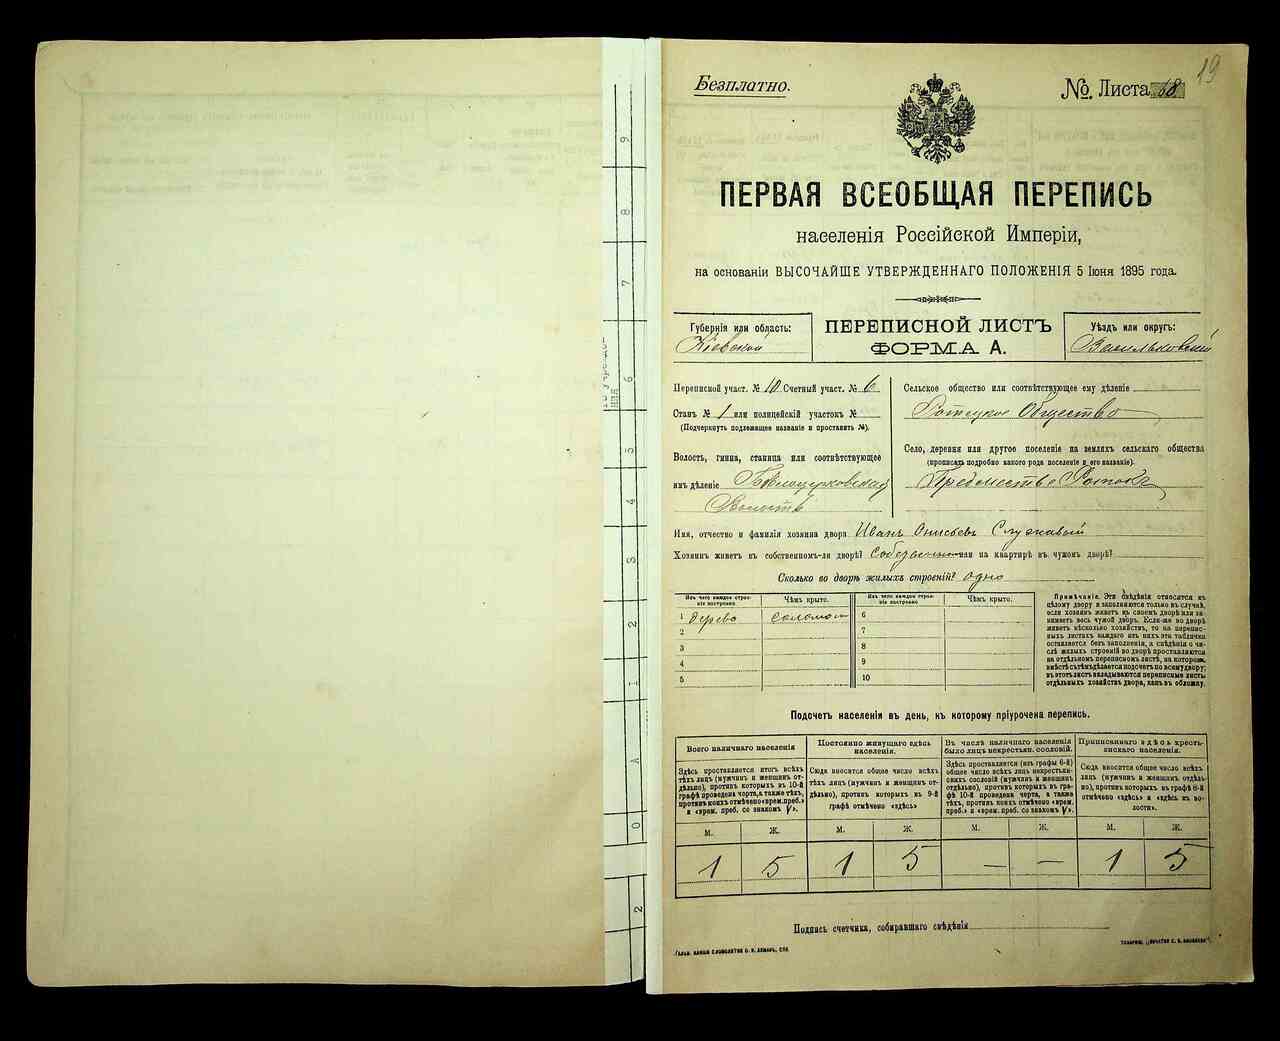 19
Безплатно.
№ Листа 68
ПЕРВАЯ ВСЕОБЩАЯ ПЕРЕПИСЬ
населенія Россійской Имперіи,
на основаніи ВЫСОЧАЙШЕ УТВЕРЖДЕННАГО ПОЛОЖЕНІЯ 5 Іюня 1895 года.
Губернія или область:
Кіевской
ПЕРЕПИСНОЙ ЛИСТЪ
ФОРМА А.
Уѣздъ или округъ:
Васильковскій
Переписной участ. № 10 Счетный участ. № 6
Станъ № 1 или полицейскій участокъ №
(Подчеркнуть подлежащее названіе и проставить №).
Волость, гмина, станица или соотвѣтствующее
имъ дѣленіе Бѣлоцерковская
Волость
Сельское общество или соотвѣтствующее ему дѣленіе
Общество
Село, деревня или другое поселеніе на земляхъ сельскаго общества
(прописать подробно какого рода поселеніе и его названіе).
Предместье Ротокъ
Имя, отчество и фамилія хозяина двора Иванъ Онисьевъ Служавый
Хозяинъ живетъ въ собственномъ-ли дворѣ? или на квартирѣ въ чужомъ дворѣ?
Сколько во дворѣ жилыхъ строеній? одно
Изъ чего каждое строеніе построено
Чѣмъ крыто.
Изъ чего каждое строеніе построено
Чѣмъ крыто.
1 дерево соломой
2
3
4
5
6
7
8
9
10
Примѣчаніе. Эти свѣдѣнія относятся къ
цѣлому двору и заполняются только въ случаѣ,
если хозяинъ живетъ въ своемъ дворѣ или занимаетъ весь чужой дворъ. Если-же во дворѣ
живетъ нѣсколько хозяйствъ, то на переписныхъ листахъ каждаго изъ нихъ эта табличка
оставляется безъ заполненія, а свѣдѣнія о числѣ жилыхъ строеній во дворѣ проставляются
на отдѣльномъ переписномъ листѣ, на которомъ
вмѣстѣ съ тѣмъ дѣлается подсчетъ по всему двору;
въ этотъ листъ вкладываются переписные листы
отдѣльныхъ хозяйствъ двора, какъ въ обложку.
Подсчетъ населенія въ день, къ которому пріурочена перепись.
Всего наличнаго населенія
Постоянно живущаго здѣсь населенія.
Въ числѣ наличнаго населенія было лицъ некрестьян. сословій.
Приписаннаго здѣсь крестьянскаго населенія.
Здѣсь проставляется итогъ всѣхъ
тѣхъ лицъ (мужчинъ и женщинъ отдѣльно), противъ которыхъ въ 10-й
графѣ проведена черта, а также тѣхъ,
противъ коихъ отмѣчено «врем. преб.»
и «врем. преб. со знакомъ V».
Сюда вносится общее число всѣхъ
тѣхъ лицъ (мужчинъ и женщинъ отдѣльно), противъ которыхъ въ 9-й
графѣ отмѣчено «здѣсь»
Здѣсь проставляется (изъ графы 6-й)
общее число всѣхъ лицъ некрестьянскихъ сословій (мужчинъ и женщинъ
отдѣльно), противъ которыхъ въ графѣ 10-й проведена черта, а также
тѣхъ, противъ коихъ отмѣчено «врем.
преб.» и «врем. преб. со знакомъ V».
Сюда вносится общее число всѣхъ
лицъ (мужчинъ и женщинъ отдѣльно), противъ которыхъ въ графѣ 8-й
отмѣчено «здѣсь» и «здѣсь въ волости».
М. Ж. М. Ж. М. Ж. М. Ж.
1 5 1 5 — — 1 5
Подпись счетчика, собиравшаго свѣдѣнія